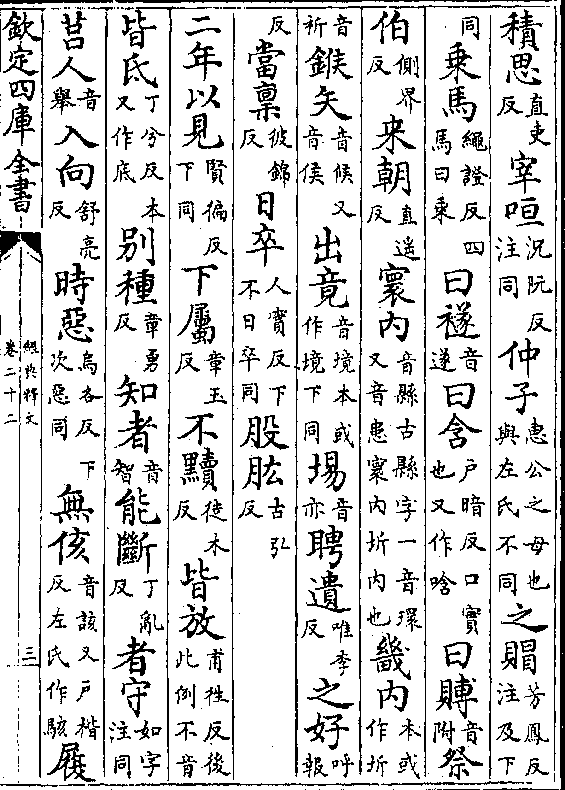 積思直吏反宰咺況阮反注同仲子惠公之母也與左氏不同之賵芳鳳反注及下
同乘馬繩證反四馬曰乘曰襚音遂曰含户暗反口實也又作唅曰賻音附祭
伯側界反来朝直遥反寰内音縣古縣字一音環又音患寰内圻内也畿内本或作圻
音祈鍭矢音候又音侯出竟音境本或作境下同埸音亦聘遺唯季反之好呼報
反當禀彼錦反日卒人實反下不日卒同股肱古弘反
二年以見賢徧反下同下屬章玉反不黷徒木反皆放甫徃反後此例不音
皆氐丁兮反本又作底别種章勇反知者音智能斷丁亂反者守如字注同
莒人音舉入向舒亮反時惡烏各反下次惡同無侅音該又户楷反左氏作駭展
欽定四庫全書
經典釋文
卷二十二
三